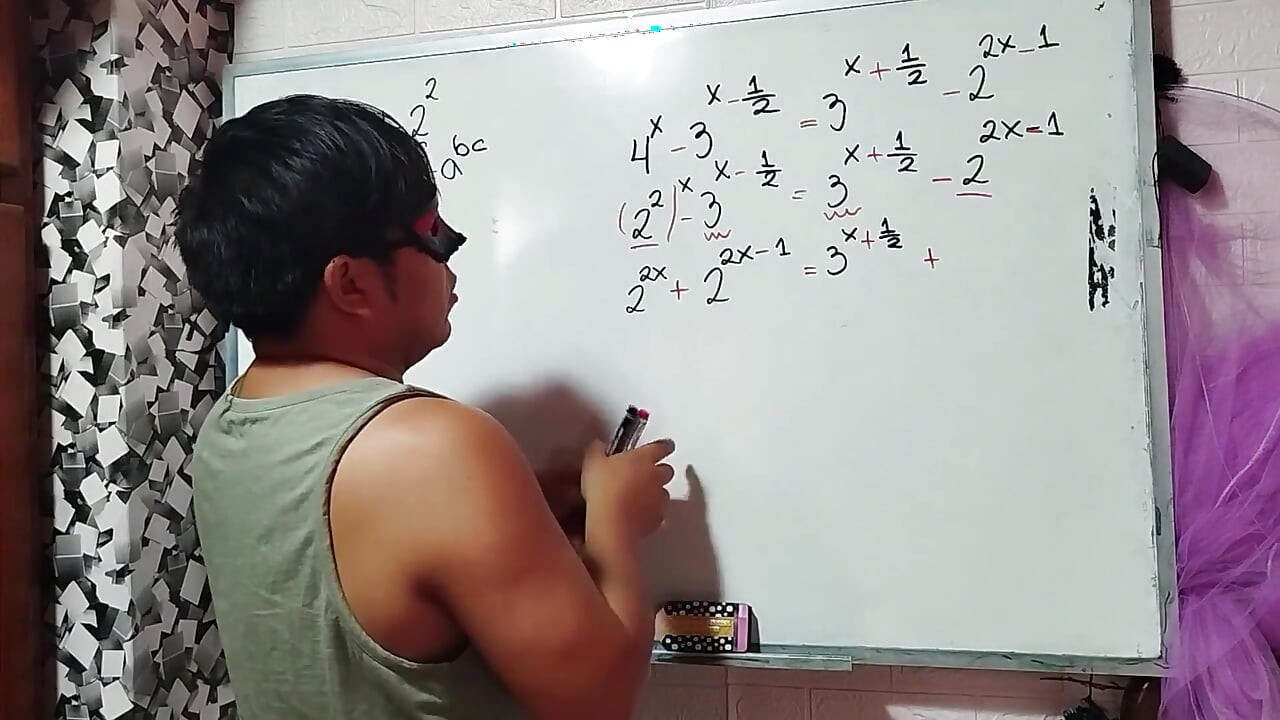 2²
a^{bc}
4^x - 3^{x - 1/2} = 3^{x + 1/2} - 2^{2x - 1}
(2²)^x - 3^{x - 1/2} = 3^{x + 1/2} - 2^{2x - 1}
2^{2x} + 2^{2x - 1} = 3^{x + 1/2} +